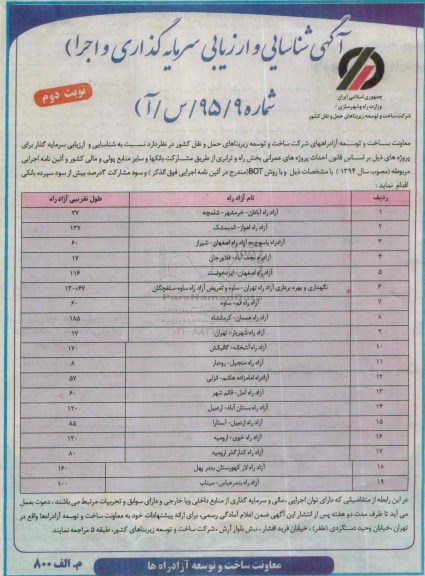 آگهی شناسایی و ارزیابی سرمایه گذاری و اجرا)
شماره ۹۵/۹/س/آ)
نوبت دوم
جمهوری اسلامی ایران
وزارت راه و شهرسازی
شرکت ساخت و توسعه زیربناهای حمل و نقل کشور
معاونت ساخت و توسعه آزادراههای شرکت ساخت و توسعه زیربناهای حمل و نقل کشور در نظر دارد نسبت به شناسایی و ارزیابی سرمایه گذار برای
پروژه های ذیل بر اساس قانون احداث پروژه های عمرانی بخش راه و ترابری از طریق مشارکت بانکها و سایر منابع پولی و مالی کشور و آئین نامه اجرایی
مربوطه (مصوب سال ۱۳۹۴) با مشخصات ذیل و با روش BOT(مندرج در آئین نامه اجرایی فوق الذکر) و سود مشارکت ۳درصد بیش از سود سپرده بانکی
اقدام نماید:
ردیف نام آزاد راه طول تقریبی آزاد راه
۱ آزاد راه آبادان- خرمشهر- شلمچه ۳۷
۲ آزاد راه اهواز- اندیمشک ۱۳۷
۳ آزادراه یاسوج به آزاد راه اصفهان- شیراز ۶۰
۴ آزادراه نجف آباد- فلاورجان ۱۷
۵ آزادراه اصفهان- ایزدخواست ۱۱۶
۶ نگهداری و بهره برداری آزاد راه تهران- ساوه و تعریض آزاد راه ساوه-سلفچگان ۱۳۰+۶۷
۷ آزاد راه قم- ساوه ۶۰
۸ آزاد راه همدان- کرمانشاه ۱۸۵
۹ آزاد راه شهریار- تهران ۱۷
۱۰ آزاد راه آشخانه- کالپکش ۱۷۰
۱۱ آزاد راه منجیل- رودبار ۸
۱۲ آزادراه امامزاده هاشم- انزلی ۵۷
۱۳ آزاد راه آمل- قائم شهر ۶۰
۱۴ آزاد راه بستان آباد- اردبیل ۱۲۰
۱۵ آزاد راه اردبیل- آستارا ۸۵
۱۶ آزاد راه خوی- ارومیه ۱۲۰
۱۷ آزاد راه کنارگذر ارومیه ۸۰
۱۸ آزاد راه لار کهورستان بندر پهل ۱۶۰
۱۹ آزاد راه بندرعباس- میناب ۱۰۰
در این رابطه از متقاضیانی که دارای توان اجرایی ،مالی و سرمایه گذاری از منابع داخلی ویا خارجی و دارای سوابق و تجربیات مرتبط می باشند ، دعوت بعمل
می آید تا ظرف مدت دو هفته پس از انتشار این آگهی ضمن اعلام آمادگی رسمی، برای ارائه پیشنهادات خود به معاونت ساخت و توسعه آزادراهها واقع در
تهران ،خیابان وحید دستگردی (ظفر) ، خیابان فرید افشار ، نبش بلوار آرش ، شرکت ساخت و توسعه زیربناهای کشور، طبقه ۵ مراجعه نمایند.
معاونت ساخت و توسعه آزادراه ها
م. الف ۸۰۰